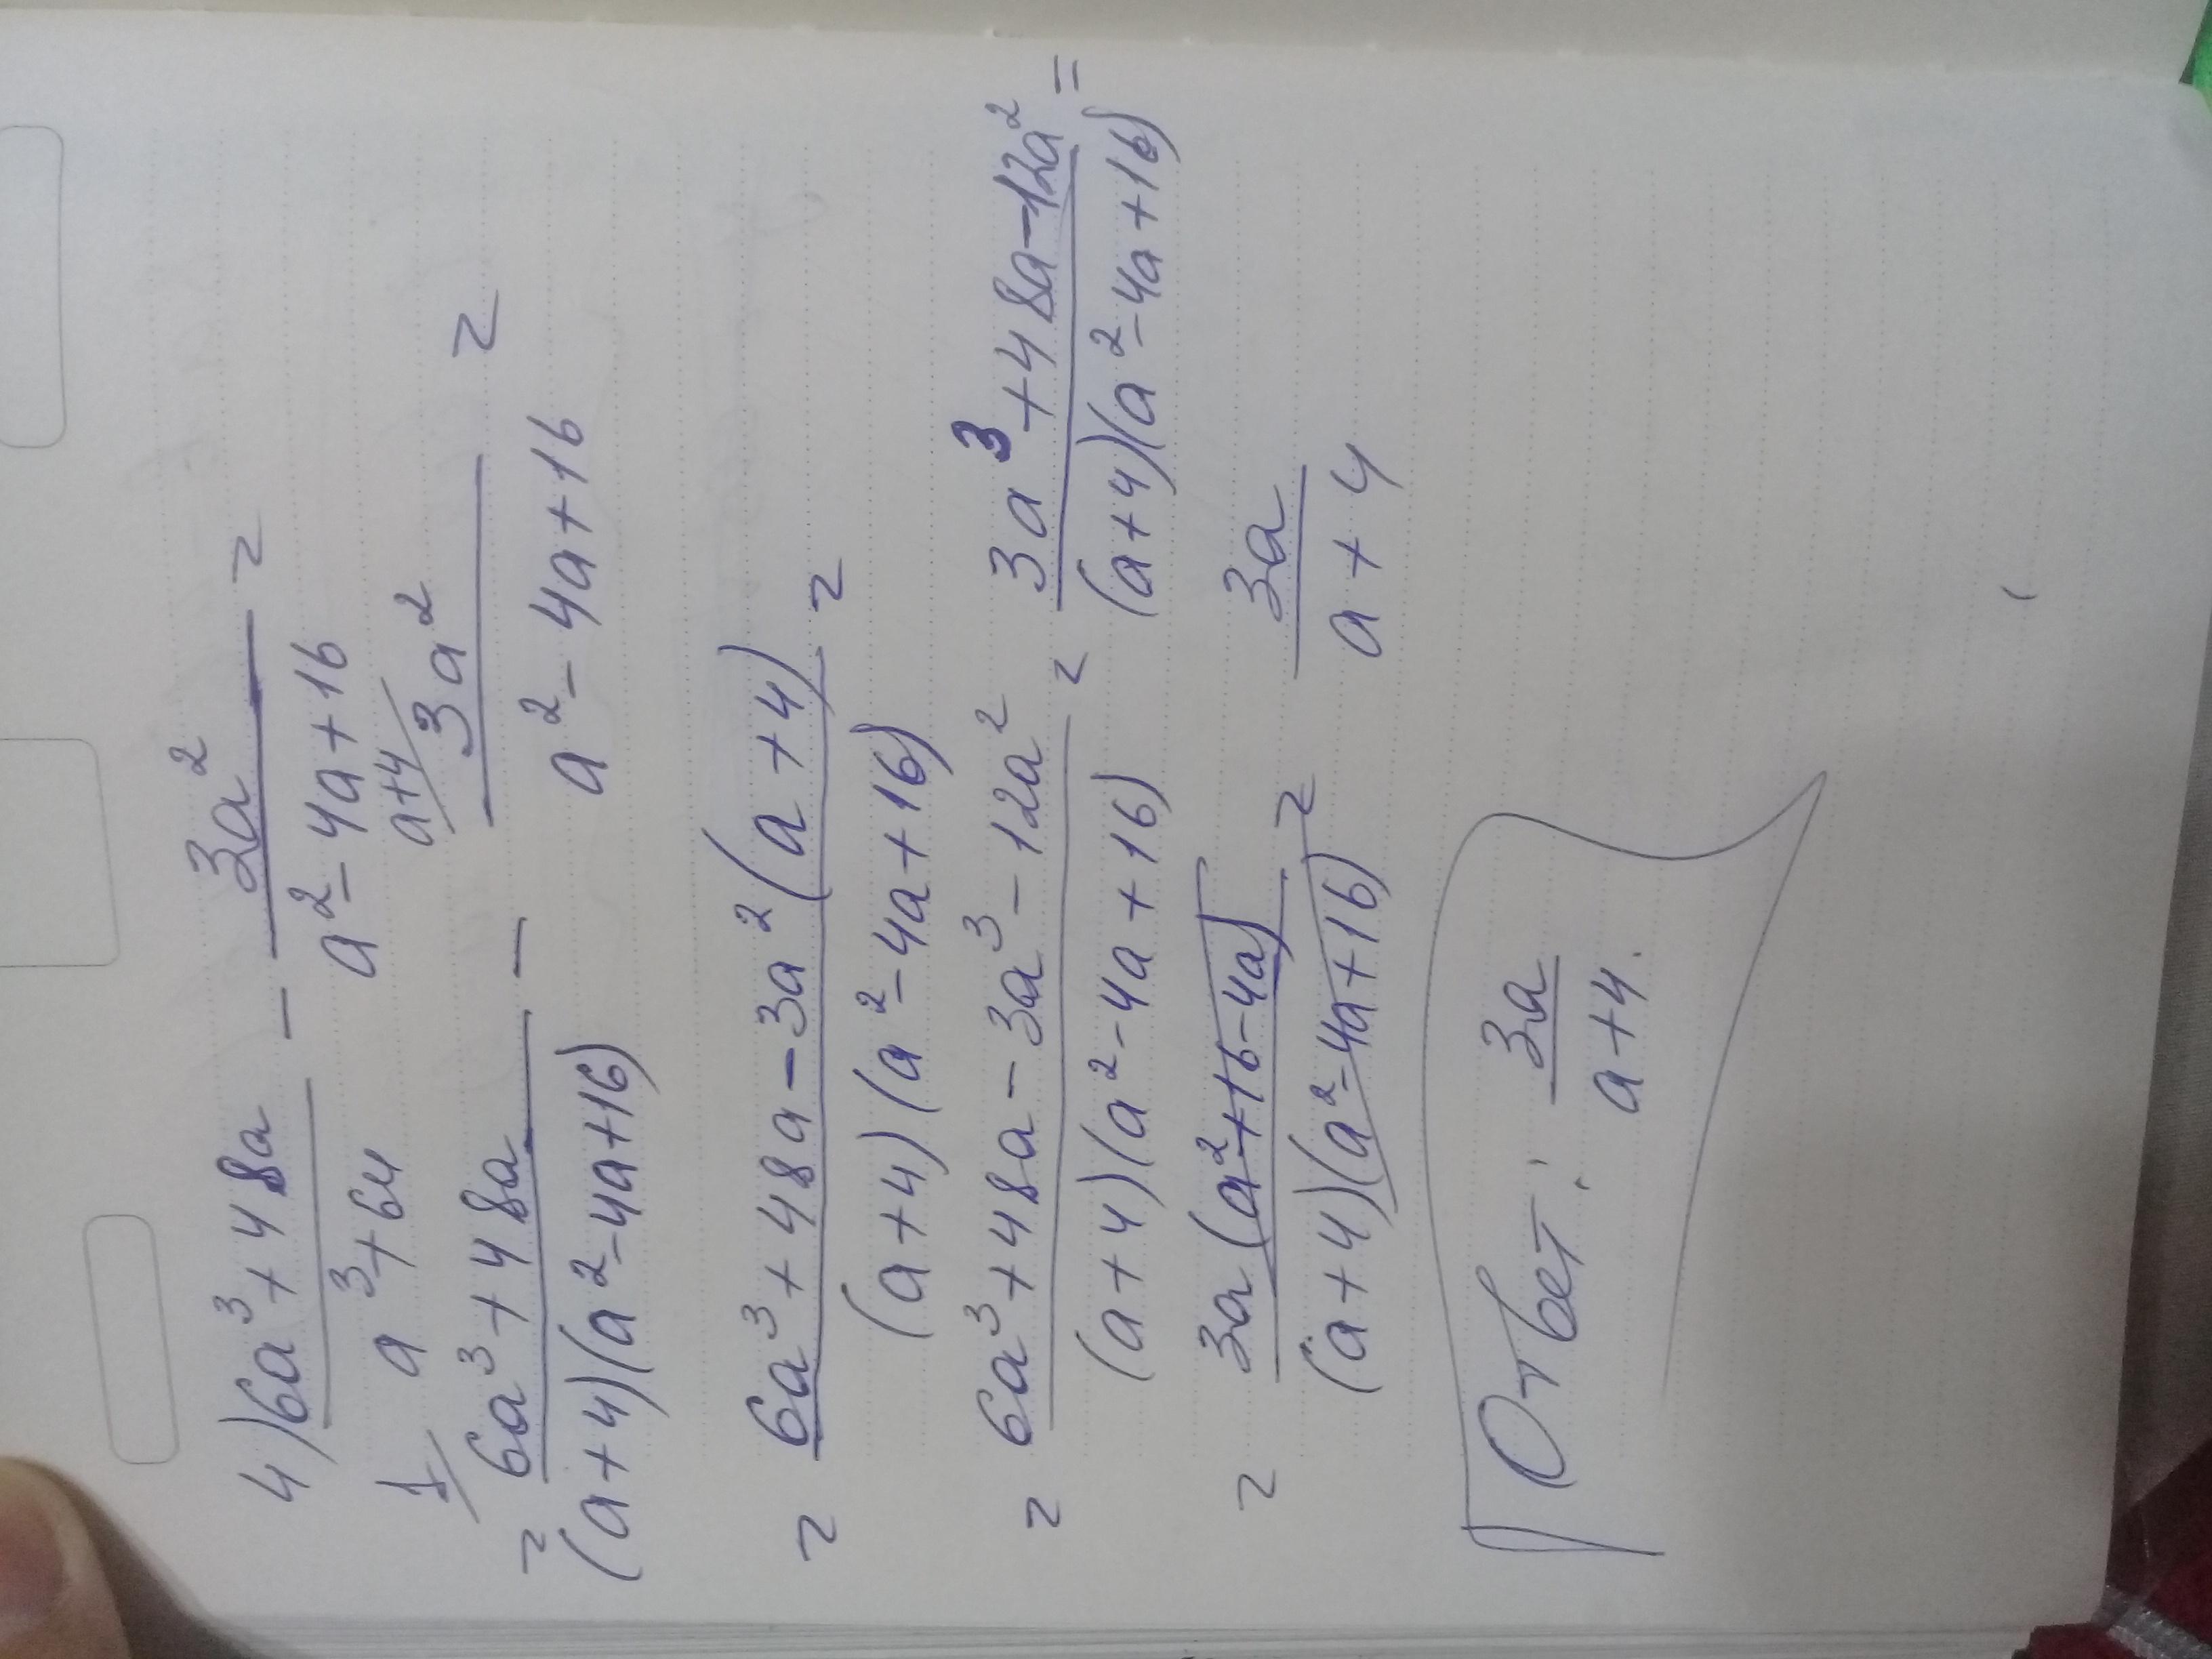 4) (6a³+48a)/(a³+64) - 3a²/(a²-4a+16) =
= (6a³+48a)/((a+4)(a²-4a+16)) - 3a²/(a²-4a+16) =
1/ a+4/
= (6a³+48a-3a²(a+4))/((a+4)(a²-4a+16)) =
= (6a³+48a-3a³-12a²)/((a+4)(a²-4a+16)) = (3a³+48a-12a²)/((a+4)(a²-4a+16)) =
= 3a(a²+16-4a)/((a+4)(a²-4a+16)) = 3a/(a+4)
Ответ: 3a/(a+4).